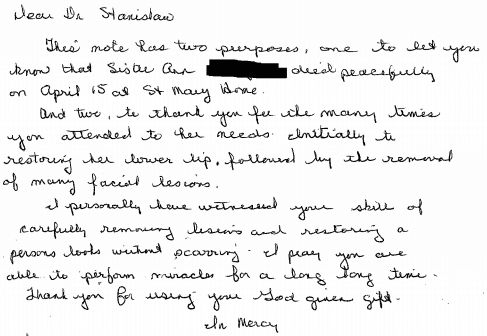 Dear Dr Stanislaw
This note has two purposes, one to let you
know that Sister Ann died peacefully
on April 15 at St Mary Home.
And two, to thank you for the many times
you attended to her needs. Initially to
restoring her lower lip, followed by the removal
of many facial lesions.
I personally have witnessed your skill of
carefully removing lesions and restoring a
persons looks without scarring. I pray you are
able to perform miracles for a long long time.
Thank you for using your God given gift.
In Mercy